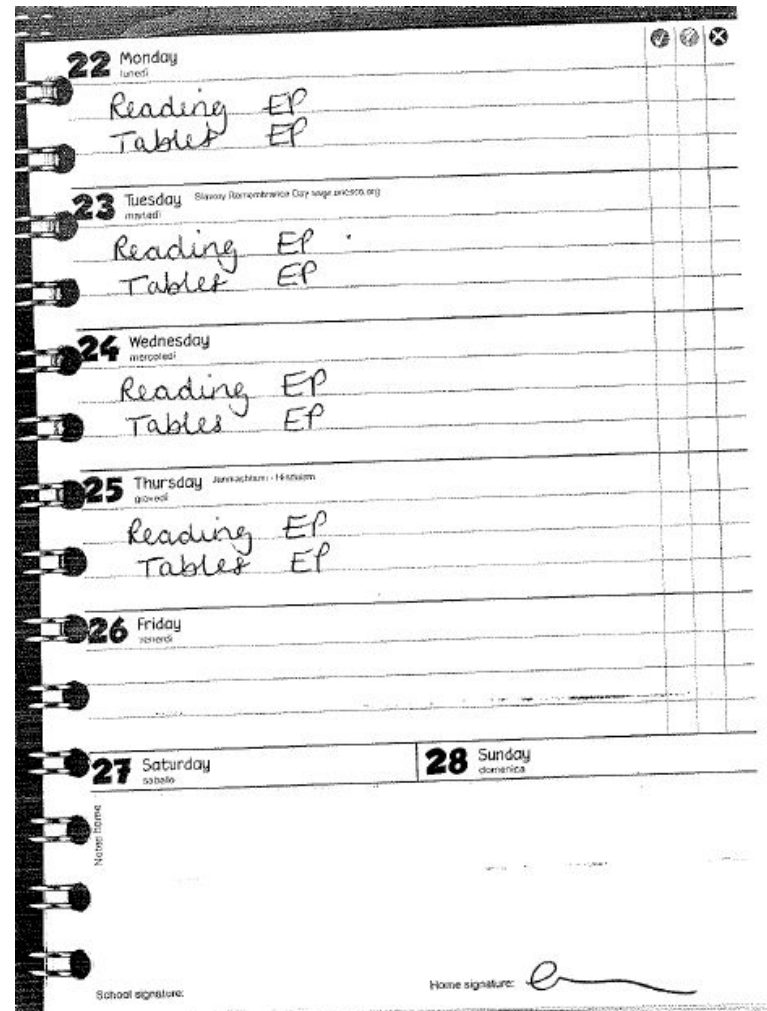 22 Monday
lunedì
Reading EP
Tables EP
23 Tuesday Slavery Remembrance Day www.unesco.org
martedì
Reading EP
Tables EP
24 Wednesday
mercoledì
Reading EP
Tables EP
25 Thursday Janmashtami - Hinduism
giovedì
Reading EP
Tables EP
26 Friday
venerdì
27 Saturday
sabato
28 Sunday
domenica
Notes home
School signature:
Home signature: